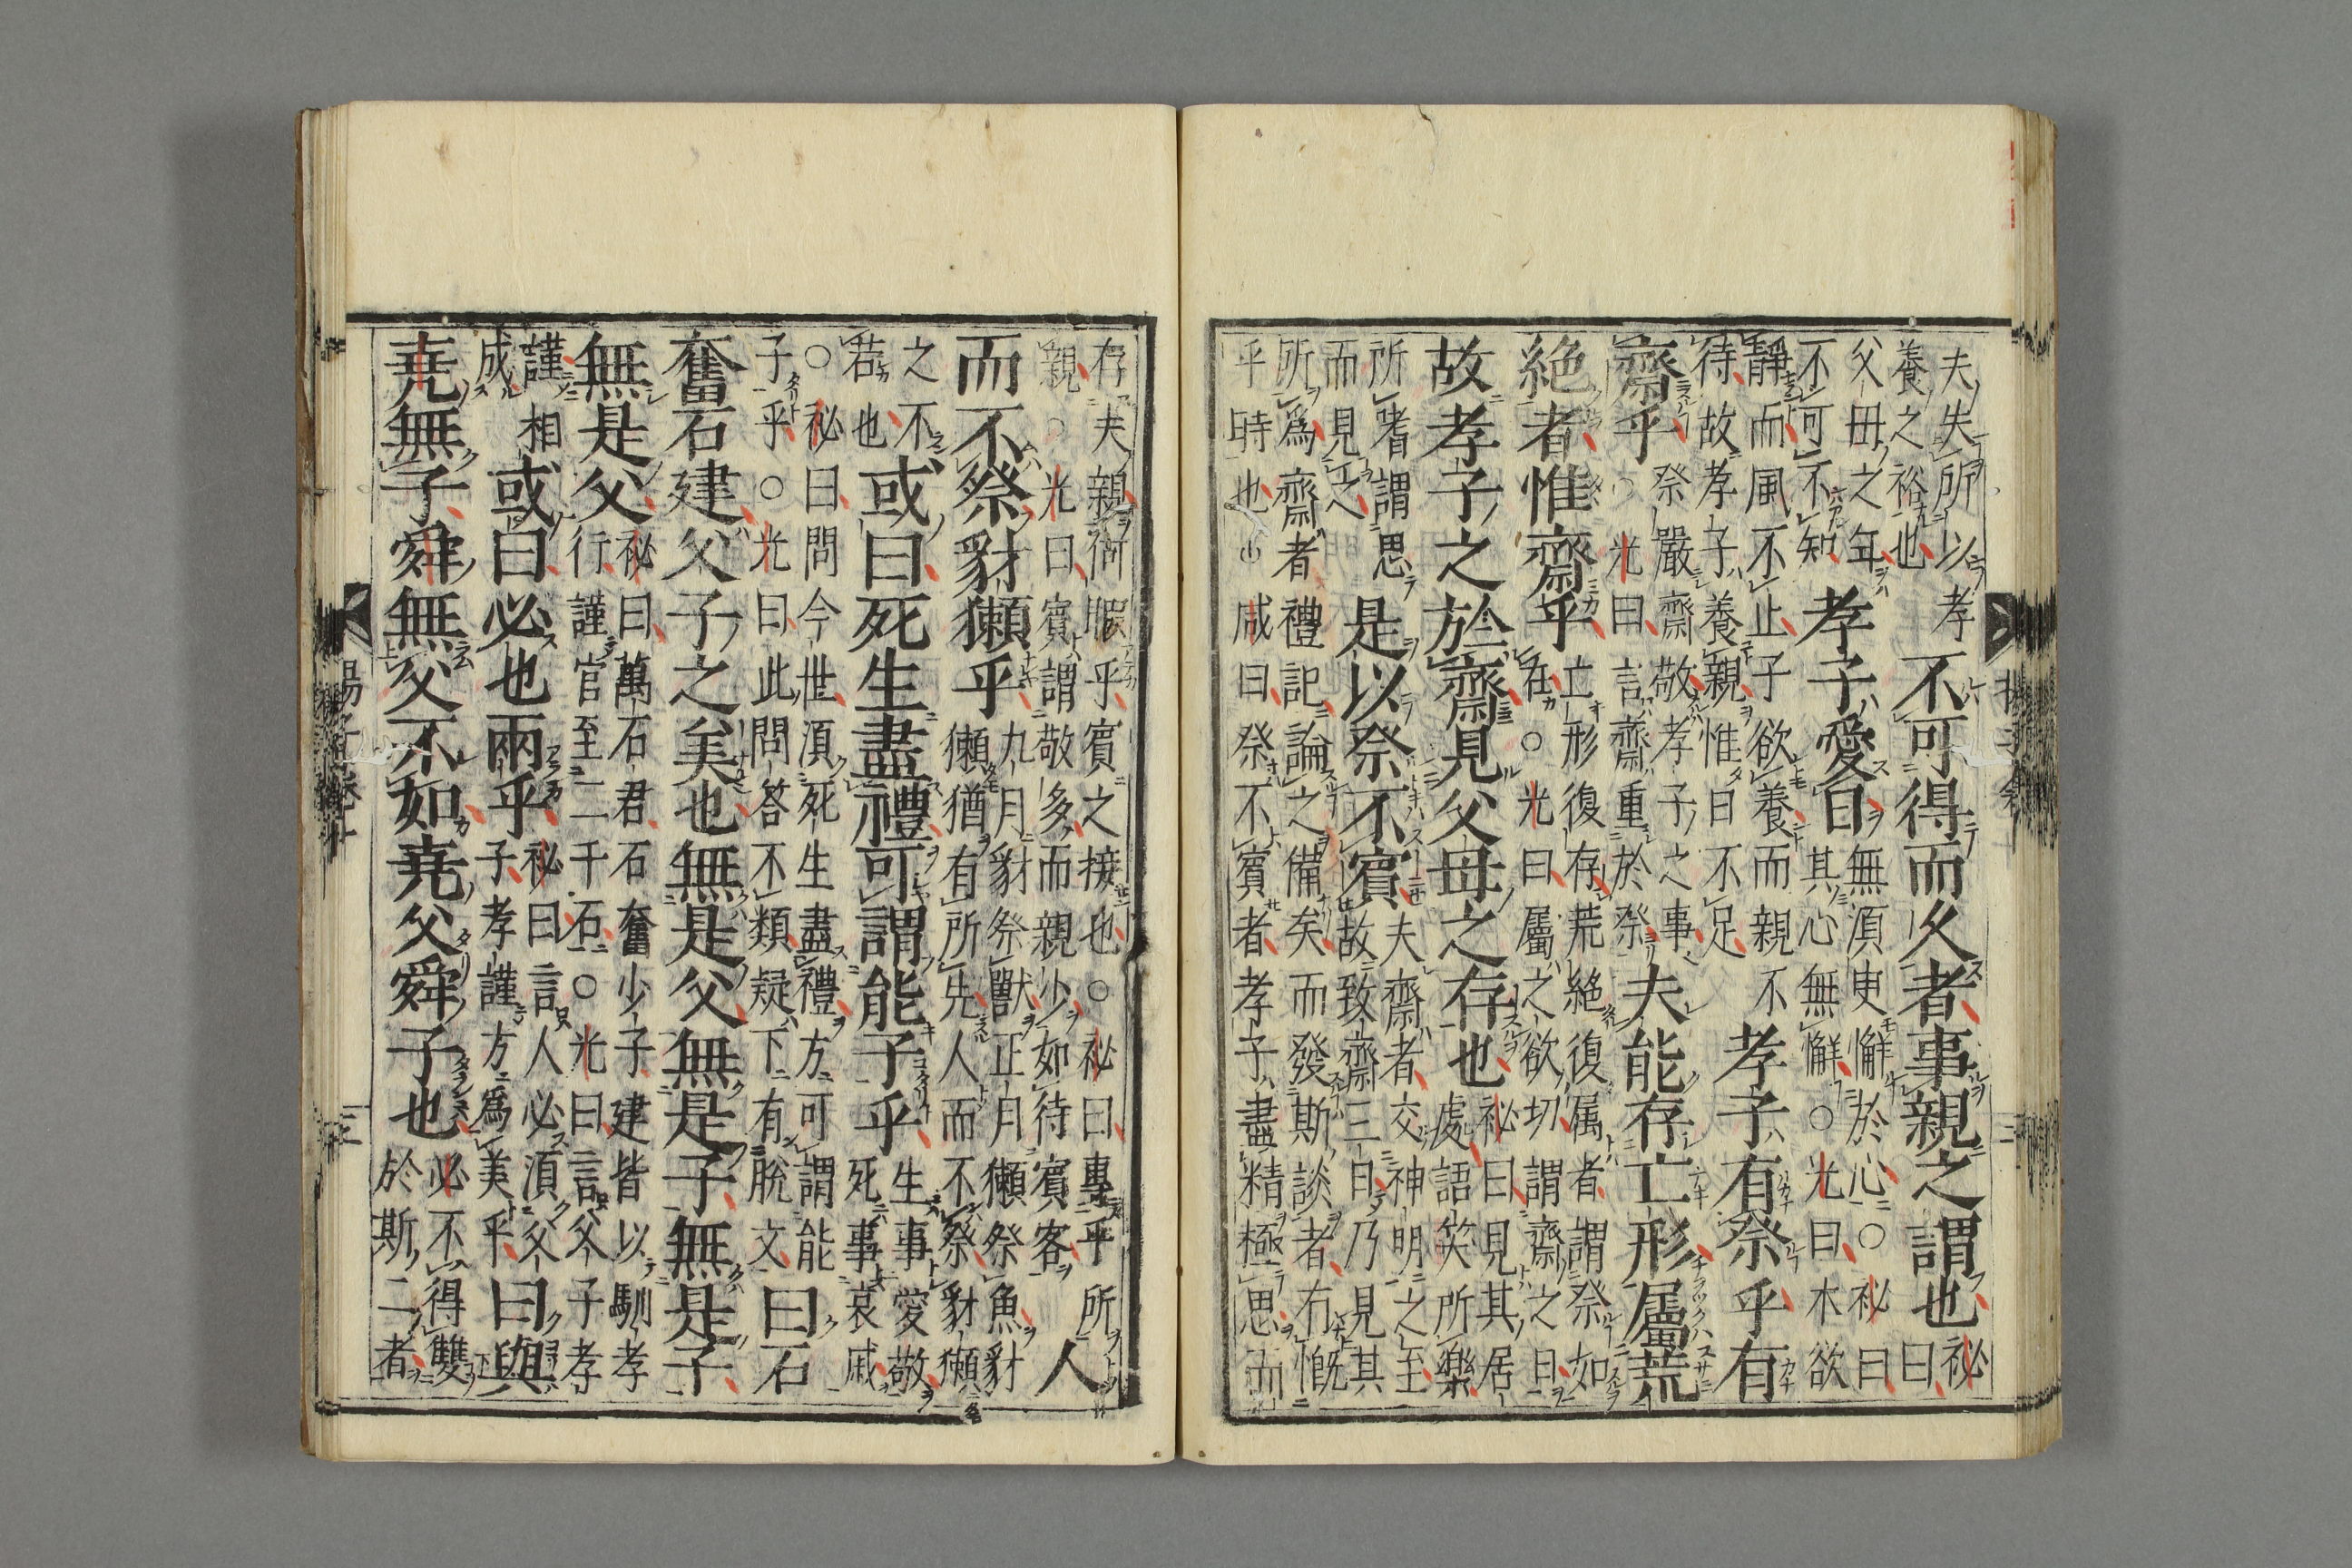 夫失所以孝養之裕也不可得而久者事親之謂也祕曰
父母之年不可不知孝子愛日無須臾懈於心○祕曰其心無懈○光曰木欲
靜而風不止子欲養而親不待故孝子養親惟日不足孝子有祭乎有
齋乎祭嚴齋敬孝子之事○光曰言齋重於祭夫能存亡形屬荒
絶者惟齋乎亡形復存荒絶復属者謂祭如在○光曰屬之欲切謂齋之日
故孝子之於齋見父母之存也祕曰見其居處語笑所樂
所嗜謂思而見之是以祭不賓夫齋者交神明之至故致齋三日乃見其
所爲齋者禮記論之備矣而發斯談者有慨乎時也咸曰祭不賓者孝子盡精極思而
存夫親何暇乎賓之接也○祕曰專乎所親○光曰賓謂敬多而親少如待賓客人
而不祭豺獺乎九月豺祭獸正月獺祭魚豺獺猶有所先人而不祭豺獺
之不若也或曰死生盡禮可謂能子乎生事愛敬死事哀戚
○祕曰問今世須死生盡禮方可謂能子乎○光曰此問答不類疑下有脫文曰石
奮石建父子之美也無是父無是子無是子
無是父祕曰萬石君石奮少子建皆以馴孝行謹官至二千石○光曰言父子孝
謹相成或曰必也兩乎祕曰言人必須父子孝謹方爲美乎曰與
堯無子舜無父不如堯父舜子也必不得雙於斯二者